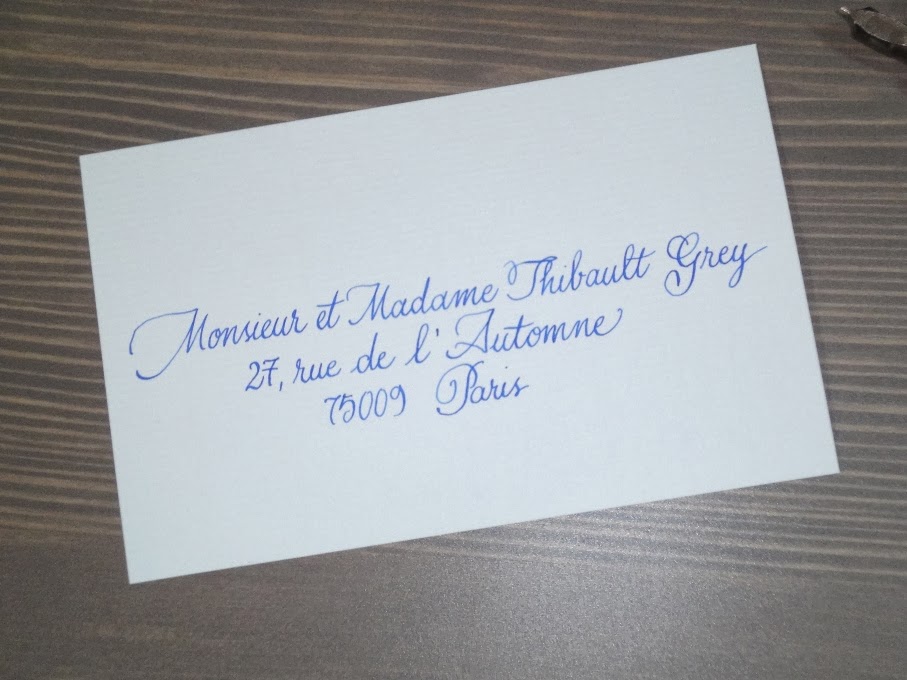 Monsieur et Madame Thibault Grey
27, rue de l'Automne
75009 Paris